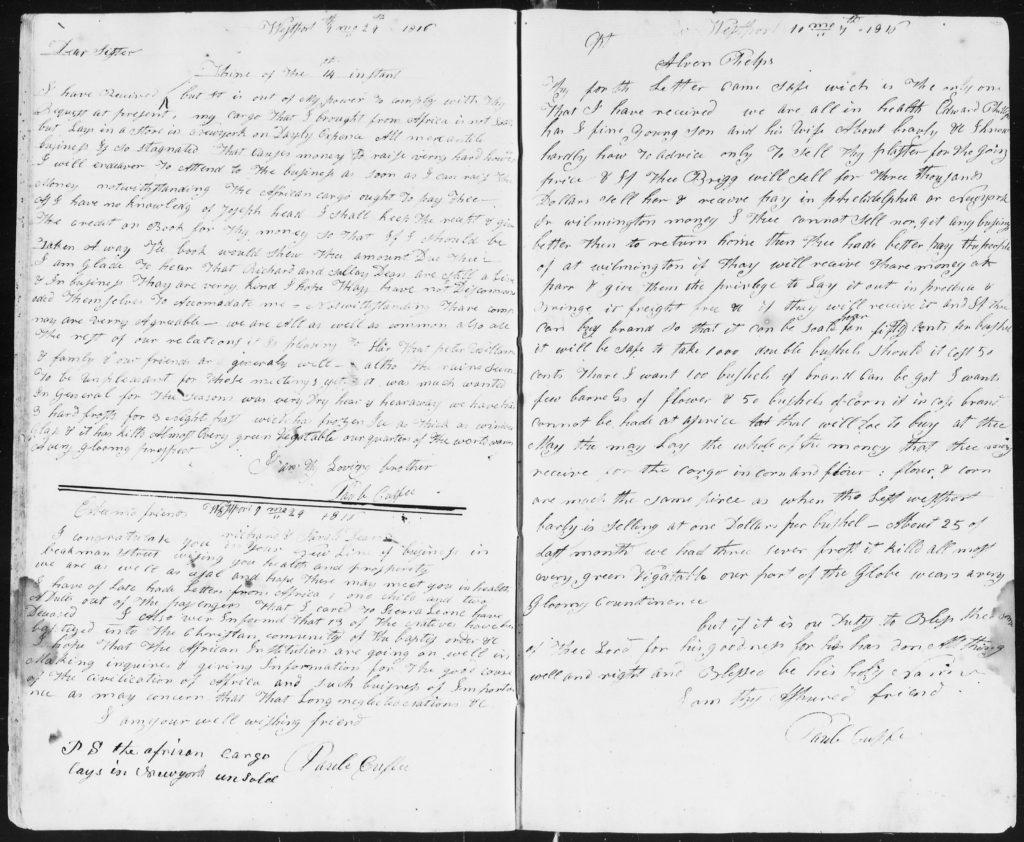 Westport 9th mo 29th 1816
Dear Sister
Thine of the 14th instant
I have Received but It is out of My power To comply with Thy
Request at present, my cargo That I brought from Africa is not Sold
but Lays in a Store in Newyork on Dayly Expence All mercantile
business is so Stagnated That Causes money To raise verry hard however
I will endeavor To Attend to The business as soon as I can raise The
Money notwithstanding The African cargo ought To pay Thee
As I have no knowledg of Joseph head I shall keep The receit & give
The credit on Book for Thy money so That If I should be
Taken A way The book would Shew The amount Due Thee
I am Glade To hear That Richard and are still a live
& In business Thay are verry kind I hope Thay have not Discommo
ded Themselves To Acomadate me notwithstanding Thare comp
nay are verry Agreeable we are All as well as common also all
The rest of our relations it is pleasing To That peter William
& family & our friends are generaly well altho the rains seem
To be Unpleasent for Those meetings yet it was much wanted
In General for The Seasons was verry Dry hear & hearaway we have had
3 hard frosts for 3 nights past wich has frozen Ice as Thick as window
Glass & it has killd Almost Every green Vegetable our quarter of The world wears
A very Gloomy prospect
I am Thy Loving brother
Paul Cuffee
Esteemed friends Westport 9 mo 29 1816
richard &
I congratulate you in your new Line of business in
beekman street wishing you health and prosperity
we are as well as usal and hope These may meet you in health
I have of late hade Letters from Africa, one child and two
Adults out of The passengers That I cared To Sierra Leone have
Deceased I Also wer Informed That 13 of The natives have been
baptized into The Christian comunity of The baptis order &c
I hope That The African Institution are going on well in
Making inquiries & giving Information for The good cause
of The Civilization of Africa and such business of Importa
nce as may concern that That Long neglected nations &c
I am your well wishing friend
P S the african cargo
lays in Newyork unsold
Paul Cuffee
Westport 10 mo 7th 1816
Alven Phelps
Thy forth Letter came safe wich is The only one
That I have received we are all in health Edward Phillips
has I fine young son and his Wife About bravly &c I know
hardly how To advice only To sell Thy plaster for the going
price & If Thee Brigg will sell for Three Thousands
Dollars sell her & receive pay in philedelphia or Newyork
Or wilmington money I Thee cannot Sell nor git any busiss
better then to return home then thee hade better pay the people
of at wilmington if thay will receive Thare money at
parr & give Them the privlege to Lay it out in produce &
bringe it freight free & if they will receive it and If thee
can buy brand so that it can be Sold hear for fifty cents per bushel
it will be safe to take 1000 double bushel should it cost 50
cents Thare I want 100 bushels of brand Can be got I wants
few barrels of flower & 50 bushels of corn if in case brand
cannot be hade at advice that will doe to buy at thee
May thee may Lay the whole of the money that thee may
receive for the cargo in corn and flower : flower & corn
are much the same pirce as when the left westport
barly is selling at one Dollars per bushel About 25 of
last month we had three sever frost it killd all most
every green Vigatable our part of the Globe wears a very
Gloomy Countinence
but if it is our Duty to Bless the
of Thee Lord for his goodness for he has don All things
well and right and Blessed be his holy
I am thy Assured friend
Paul Cuffe